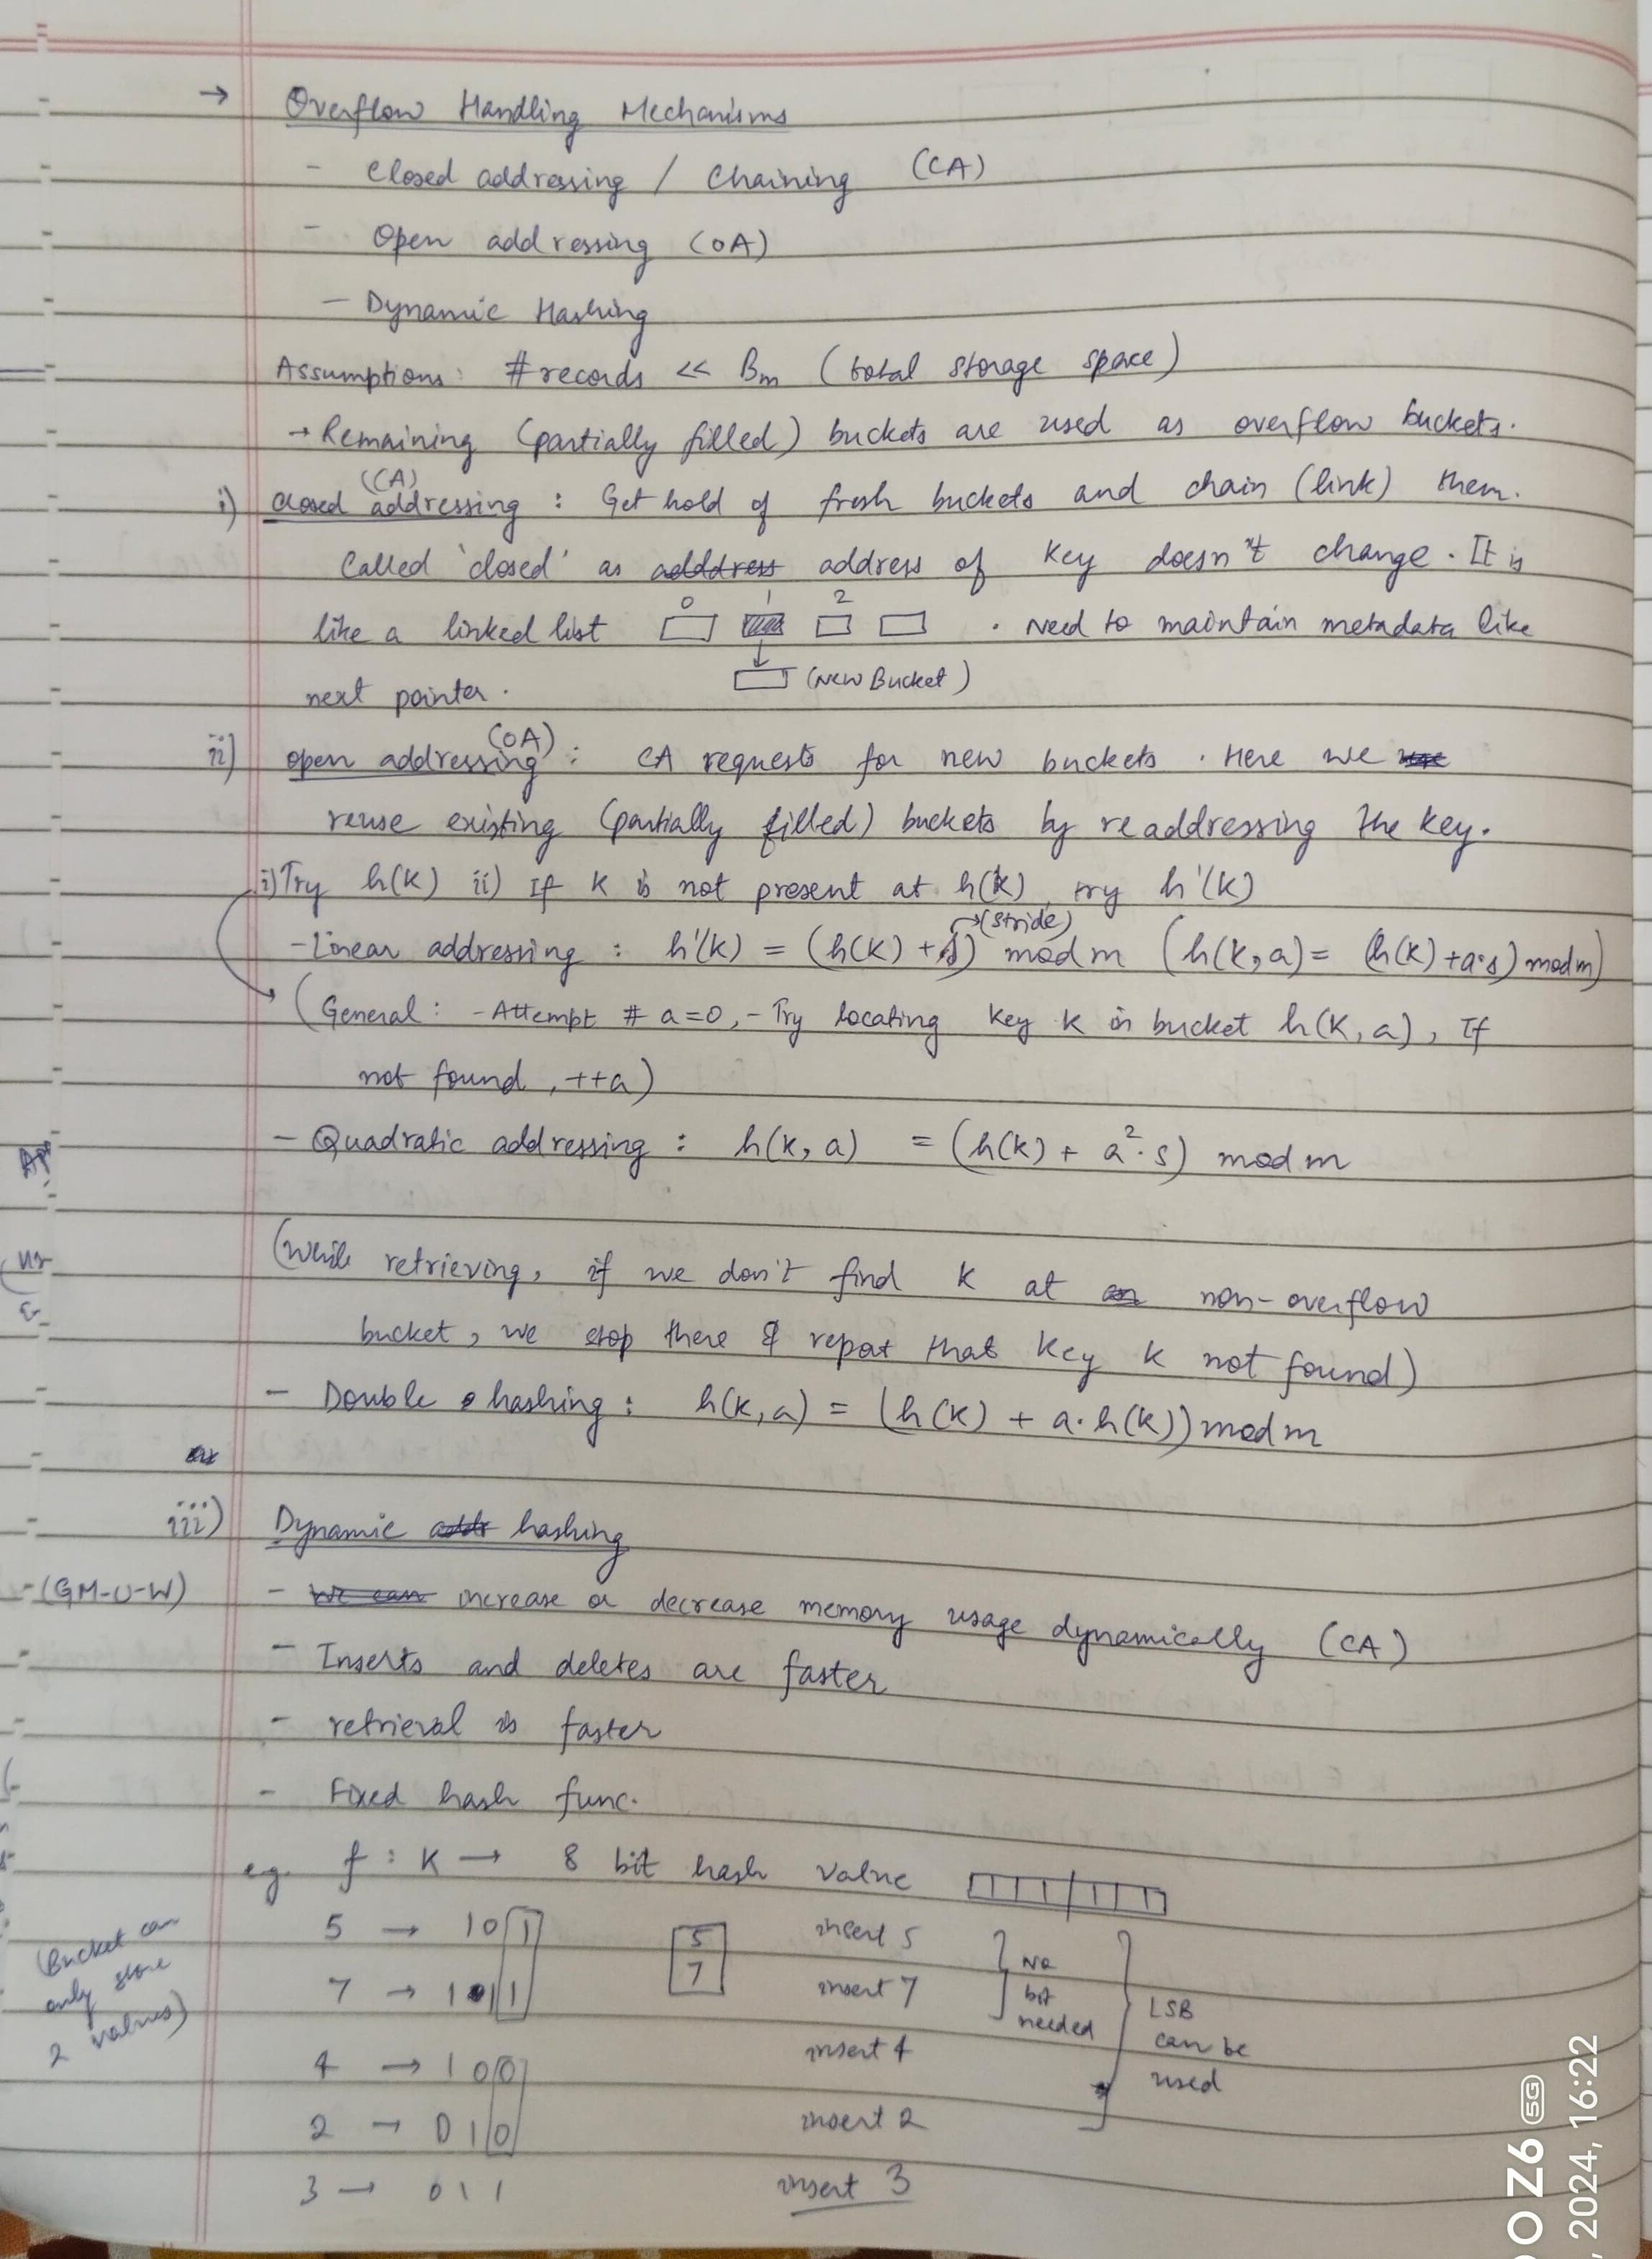 → Overflow Handling Mechanisms
- Closed addressing / Chaining (CA)
- Open addressing (OA)
- Dynamic Hashing
Assumptions: # records << Bm (total storage space)
→ Remaining (partially filled) buckets are used as overflow buckets.
i) closed addressing (CA) : Get hold of fresh buckets and chain (link) them.
Called 'closed' as address of key doesn't change. It is
like a linked list 0 1 2 . Need to maintain metadata like
next pointer. (New Bucket)
ii) open addressing (OA) : CA requests for new buckets. Here we
reuse existing (partially filled) buckets by readdressing the key.
i) Try h(k) ii) If k is not present at h(k) try h'(k)
(stride)
- Linear addressing : h'(k) = (h(k) + s) mod m (h(k, a) = (h(k) + a·s) mod m)
(General: - Attempt # a=0, - Try locating key k in bucket h(k, a), If
not found, ++a)
- Quadratic addressing : h(k, a) = (h(k) + a²·s) mod m
(While retrieving, if we don't find k at non-overflow
bucket, we stop there & repot that key k not found)
- Double hashing : h(k, a) = (h(k) + a·h(k)) mod m
iii) Dynamic hashing
(GM-U-W) - increase or decrease memory usage dynamically (CA)
- Inserts and deletes are faster
- retrieval is faster
- Fixed hash func.
eg. f : K → 8 bit hash value
5 → 101 5 insert 5
7 → 111 7 insert 7
No
bit
needed
(Bucket can
only store
2 values)
4 → 100 insert 4
LSB
can be
used
2 → 010 insert 2
3 → 011 insert 3
Z6 5G
2024, 16:22